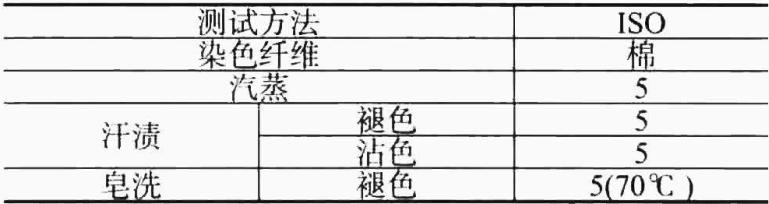 测试方法 ISO
染色纤维 棉
汽蒸 5
汗渍 褪色 5
沾色 5
皂洗 褪色 5(70℃)